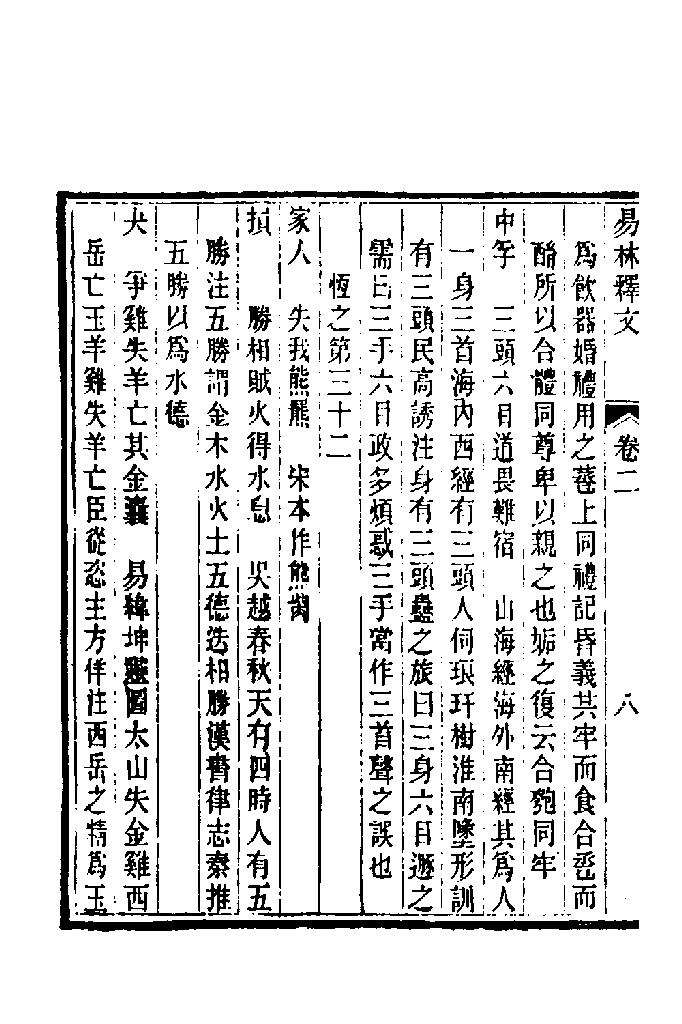 易林釋文 卷二 八
爲飲器婚禮用之䓖上同禮記昏義共牢而食合巹而
酳所以合體同尊卑以親之也姤之復云合匏同牢
中孚 三頭六目道畏難宿 山海經海外南經其爲人
一身三首海內西經有三頭人伺琅玕樹淮南墬形訓
有三頭民高誘注身有三頭蠱之旅曰三身六目遯之
需曰三手六目政多煩惑三手當作三首聲之誤也
恆之第三十二
家人 失我熊羆 宋本作熊
損 勝相賊火得水息 吳越春秋天有四時人有五
勝注五勝謂金木水火土五德迭相勝漢書律志秦推
五勝以爲水德
夬 爭雞失羊亡其金囊 易緯坤靈圖太山失金雞西
岳亡玉羊雞失羊亡臣從恣主方佯注西岳之精爲玉